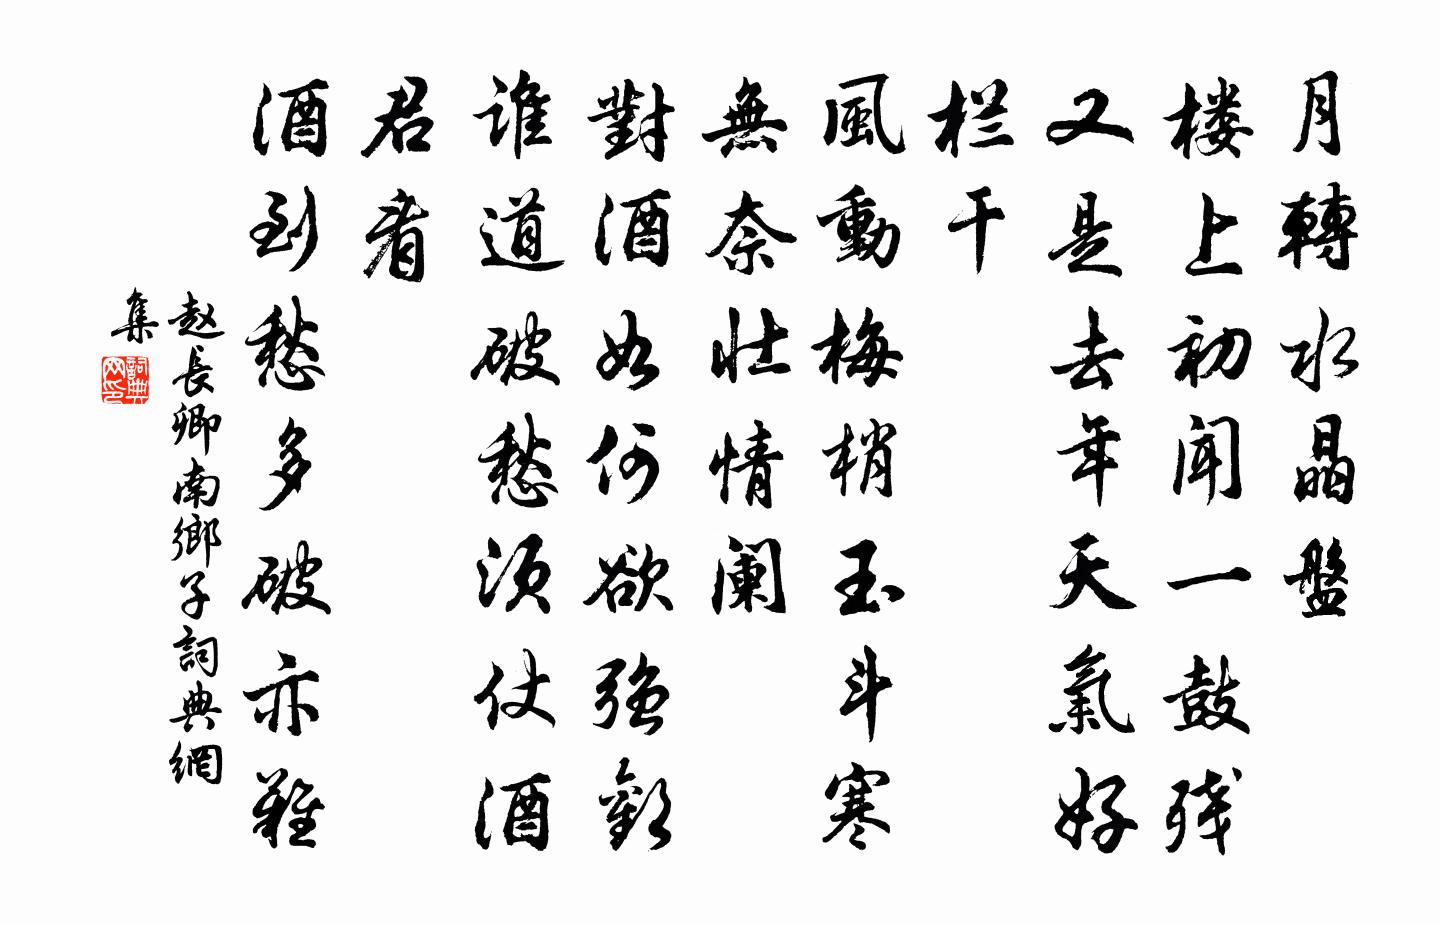 月轉水晶盤
楼上初闻一鼓残
又是去年天氣好
栏干
風動梅梢玉斗寒
無奈壮情阑
對酒如何欲强歡
谁道破愁须仗酒
君看
酒到愁多破亦難
赵長卿南鄉子詞典網
集
詞典網印